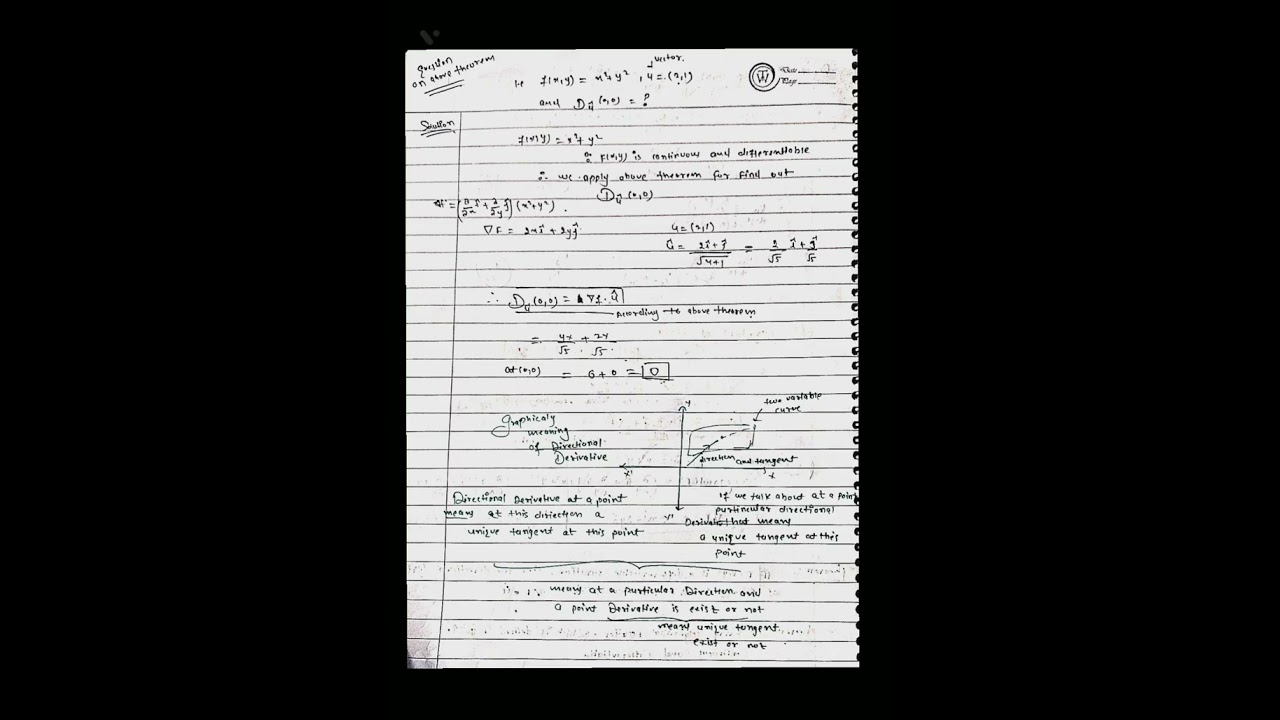 question
on above theorem
vector.
f(x,y) = x²+y² , u = (2,1)
and Dû (0,0) = ?
W
Date
Page
Solution
f(x,y) = x²+y²
∵ F(x,y) is continuous and differentiable
∴ we apply above theorem for find out
Dû (0,0)
= [∂/∂x î + ∂/∂y ĵ] (x²+y²).
∇F = 2xî + 2yĵ
u = (2,1)
û = 2î+ĵ/√4+1 = 2/√5 î + ĵ/√5
∴ Du (0,0) = ∇f·û
According to above theorem
= 4x/√5 + 2y/√5
at (0,0) = 0 + 0 = 0
Graphicaly
meaning
of Directional
Derivative
Y
two variable
curve
direction and tangent
X'
X
Y'
Directional Derivative at a point
means at this direction a
unique tangent at this point
If we talk about at a point
purtinculor directional
Derivative that means
a unique tangent at this
point
∴ means at a particular Direction and
a point Derivative is exist or not
means unique tangent
exist or not